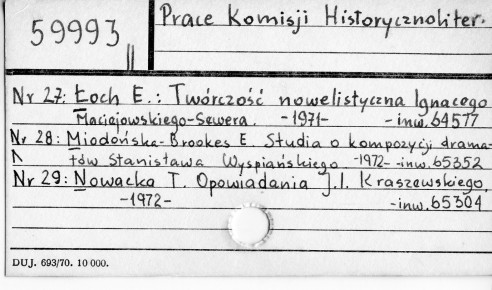 59993 II
Prace Komisji Historycznoliter.
Nr 27: Łoch E.: Twórczość nowelistyczna Ignacego
Maciejowskiego-Sewera. -1971- -inw. 64577
Nr 28: Miodońska-Brookes E. Studia o kompozycji drama-
tów Stanisława Wyspiańskiego -1972- -inw. 65352
Nr 29: Nowacka T. Opowiadania J.I. Kraszewskiego,
-1972- -inw. 65304
DUJ. 693/70. 10 000.